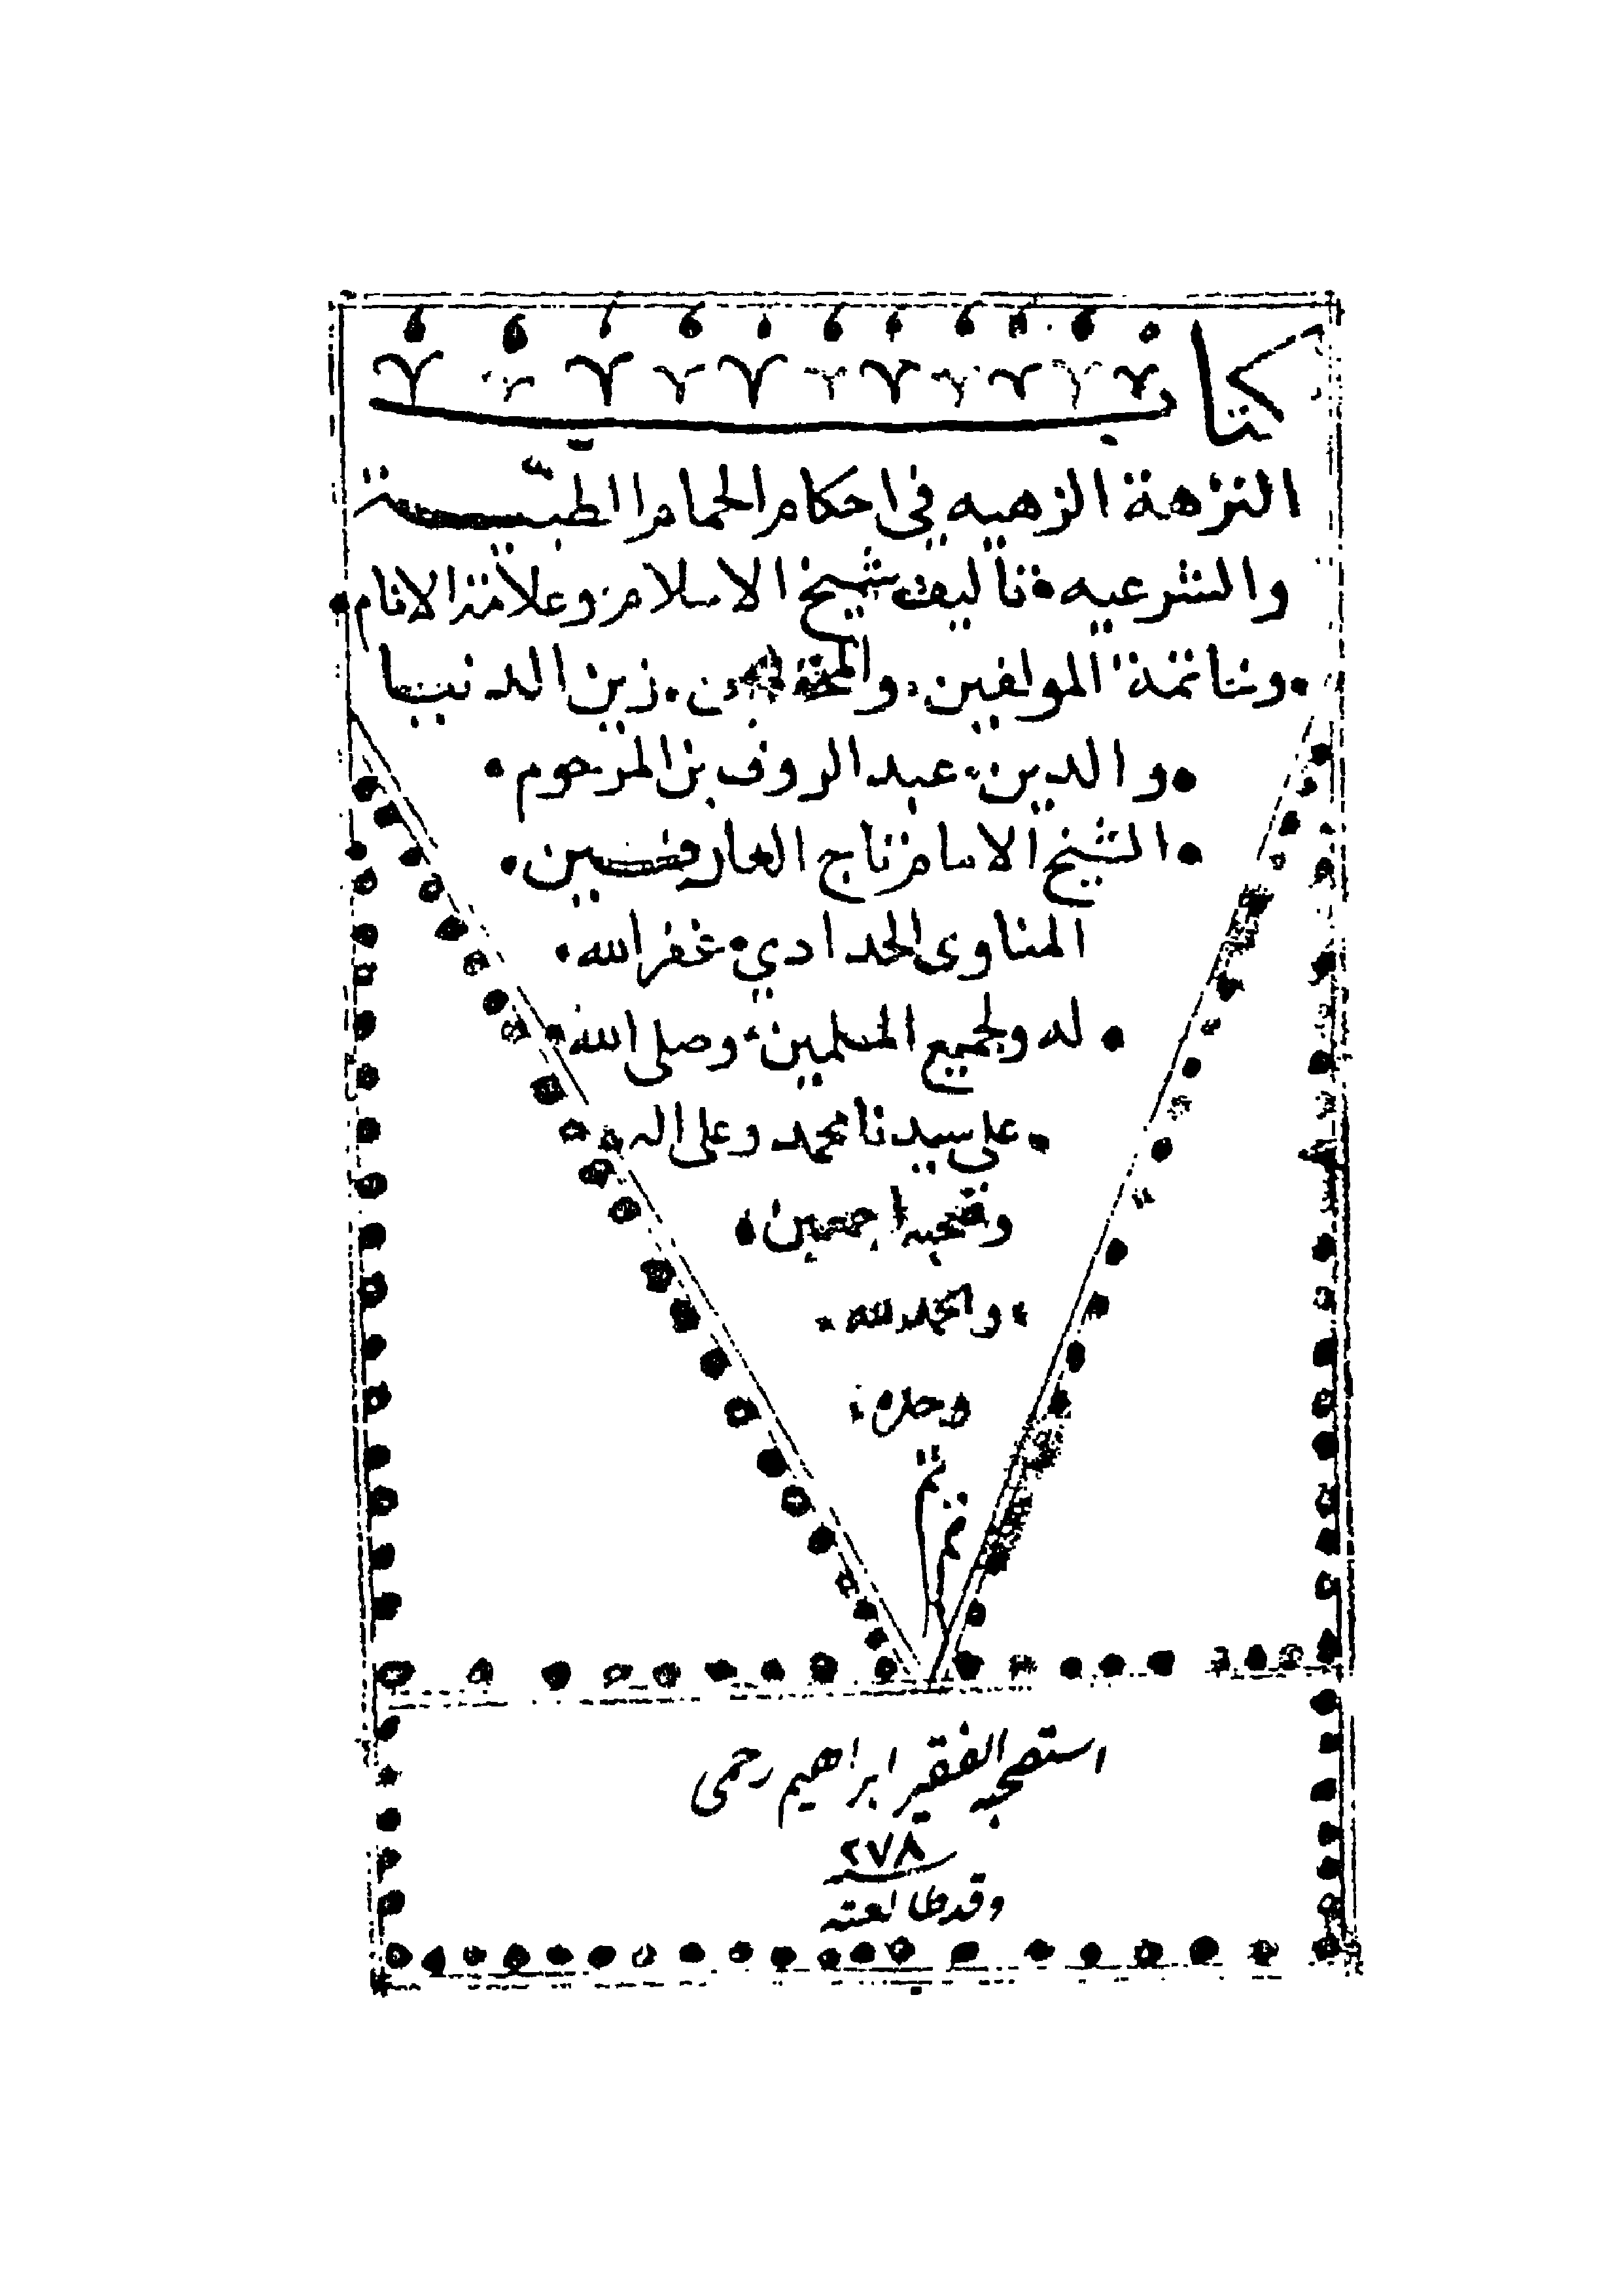 كتاب
النزهة الزهيه في احكام الحمام الطبية
والشرعيه تاليف شيخ الاسلام وعلامة الانام
وخاتمة المولفين والمحققين زين الدنيا
والدين عبد الروف بن المرحوم
الشيخ الامام تاج العارفين
المناوى الحدادي غفر الله
له ولجميع المسلمين وصلى الله
على سيدنا محمد وعلى اله
وصحبه اجمعين
والحمد لله
وحده
تم
تم
استصحبه الفقير ابراهيم رحمى
٢٧٨
وقد طالعته